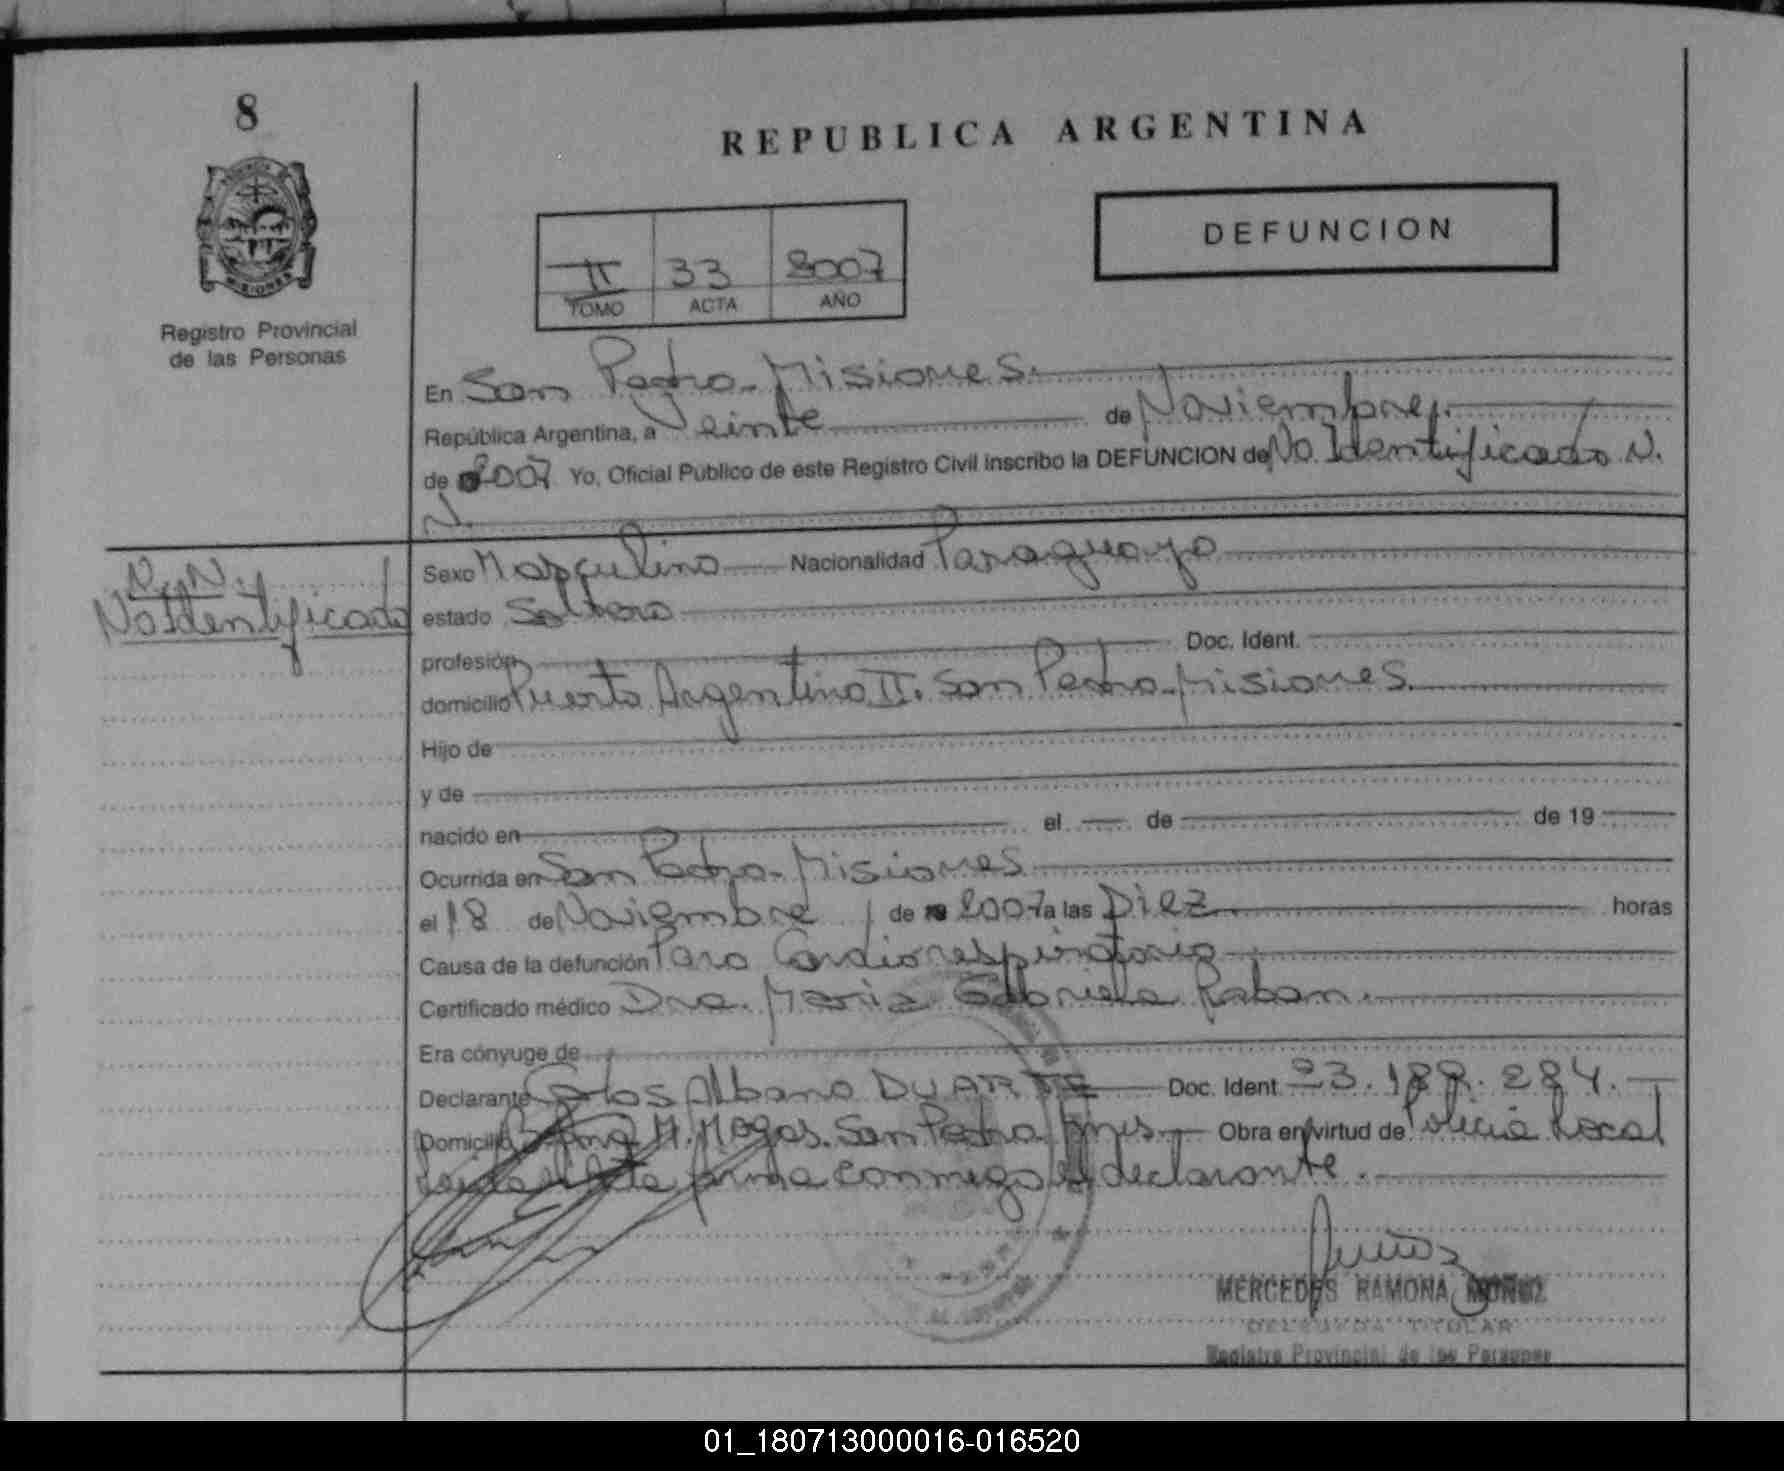 8
REPUBLICA ARGENTINA
DEFUNCION
II 33 2007
TOMO ACTA AÑO
Registro Provincial
de las Personas
En San Pedro - Misiones.
República Argentina, a Veinte de Noviembre
de 2007 Yo, Oficial Público de este Registro Civil inscribo la DEFUNCION de No Identificado N.
N.
N. N.
No Identificado
Sexo Masculino Nacionalidad Paraguayo
estado Soltero
profesión Doc. Ident.
domicilio Puerto Argentino II. San Pedro - Misiones.
Hijo de
y de
nacido en el de de 19
Ocurrida en San Pedro - Misiones
el 18 de Noviembre de 2007 a las Diez horas
Causa de la defunción Paro Cardiorespiratorio
Certificado médico Dra. Maria Gabriela
Era cónyuge de
Declarante Carlos Albano DUARTE Doc. Ident 23.188.284.
Domicilio San Pedro Mnes. Obra en virtud de Policia Local
firma conmigo el declarante.
MERCEDES RAMONA MUÑOZ
DELEGADA TITULAR
Registro Provincial de las Personas
01_180713000016-016520